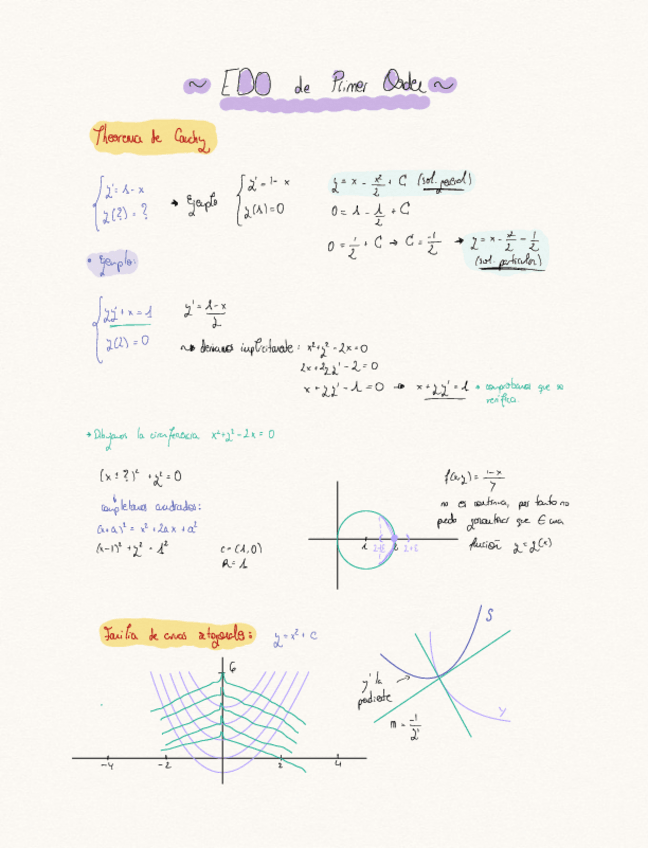 ~ EDO de Primer Orden ~
Theorema de Cauchy
y' = 1-x
y(?) = ?
→ Ejemplo
y' = 1- x
y(1)=0
y = x - x²/2 + C (sol. general)
0 = 1 - 1/2 + C
0 = 1/2 + C → C = -1/2 → y = x - x²/2 - 1/2
(sol. particular)
• Ejemplo:
yy' + x = 1
y(2) = 0
y' = 1-x/y
derivamos implicitamente: x²+y²-2x=0
2x+2yy'-2=0
x+yy'-1=0 → x+yy'=1 → comprobamos que se
verifica.
→ Dibujamos la circunferencia x²+y²-2x=0
(x ± ?)² + y² = 0
completamos cuadrados:
(x+a)² = x²+2ax+a²
(x-1)² + y² = 1²
c=(1,0)
R=1
1
2-ε
2
2+ε
f(x,y) = 1-x/y
no es continua, por tanto no
puedo garantizar que ∃ una
función y = y(x)
Familia de curvas ortogonales:
y = x² + C
6
-4
-2
2
4
S
y' la
pendiente
m = -1/y'
Y